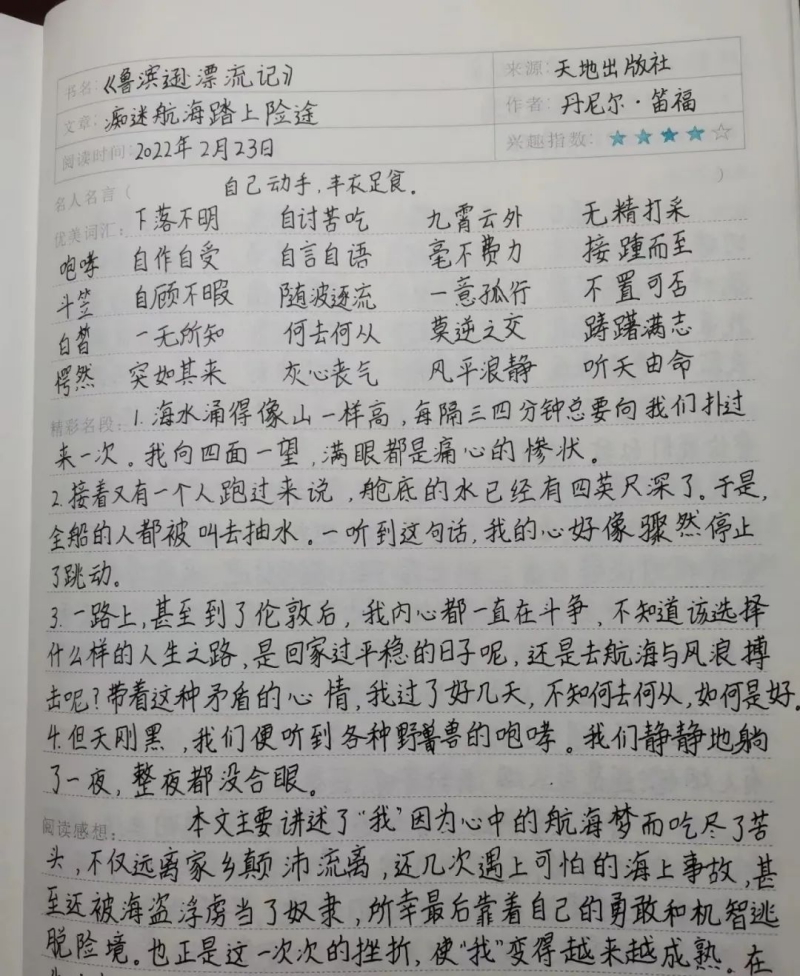 书名：《鲁滨逊漂流记》 来源：天地出版社
文章：痴迷航海踏上险途 作者：丹尼尔·笛福
阅读时间：2022年2月23日 兴趣指数：★★★★☆
名人名言（ 自己动手，丰衣足食。 ）
优美词汇： 下落不明 自讨苦吃 九霄云外 无精打采
咆哮 自作自受 自言自语 毫不费力 接踵而至
斗笠 自顾不暇 随波逐流 一意孤行 不置可否
白皙 一无所知 何去何从 莫逆之交 踌躇满志
愕然 突如其来 灰心丧气 风平浪静 听天由命
精彩名段：1.海水涌得像山一样高，每隔三四分钟总要向我们扑过
来一次。我向四面一望，满眼都是痛心的惨状。
2.接着又有一个人跑过来说，舱底的水已经有四英尺深了。于是，
全船的人都被叫去抽水。一听到这句话，我的心好像骤然停止
了跳动。
3.一路上，甚至到了伦敦后，我内心都一直在斗争，不知道该选择
什么样的人生之路，是回家过平稳的日子呢，还是去航海与风浪搏
击呢？带着这种矛盾的心情，我过了好几天，不知何去何从，如何是好。
4.但天刚黑，我们便听到各种野兽的咆哮。我们静静地躺
了一夜，整夜都没合眼。
阅读感想： 本文主要讲述了“我”因为心中的航海梦而吃尽了苦
头，不仅远离家乡颠沛流离，还几次遇上可怕的海上事故，甚
至还被海盗浮虏当了奴隶，所幸最后靠着自己的勇敢和机智逃
脱险境。也正是这一次次的挫折，使“我”变得越来越成熟。在